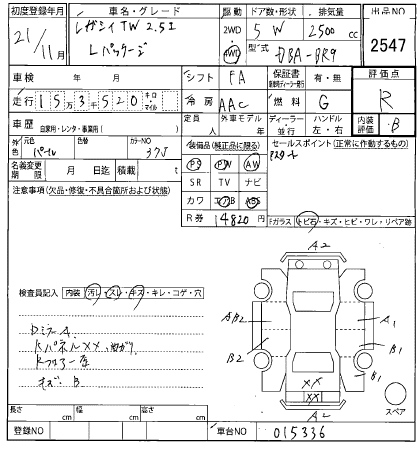 初度登録年月 車名・グレード 駆動 ドア数・形状 排気量 出品NO
21/11月 レガシィTW 2.5i 2WD 5 W 2500cc 2547
Lパッケージ 4WD 型式 DBA-BR9
車検 年 月 シフト FA 保証書 有・無 評価点
走行 15万3千520キロ・マイル 冷房 AAC 燃料 G R
車歴 自家用・レンタ・事業用( ) 定員 人 外車モデル 年 ディーラー 並行 ハンドル 左・右 内装評価 B
外色 元色 パール 色替 カラーNO 37J 装備品(純正品に限る) セールスポイント(正常に作動するもの)
名義変更期限 月 日迄 積載 t PS PW AW
注意事項(欠品・修復・不具合箇所および状態) SR TV ナビ
カワ エアB ABS
R券 14820円 Fガラス トビ石・キズ・ヒビ・ワレ・リペア跡
A2
検査員記入 内装 汚レ・スレ・キズ・キレ・コゲ・穴
AB2 A1
DミラーA
RパネルXX、曲がり
B2 B1
キズ・B
B1
XX
XX
スペア
A2
長さ cm 幅 cm 高さ cm
登録NO 車台NO 015336